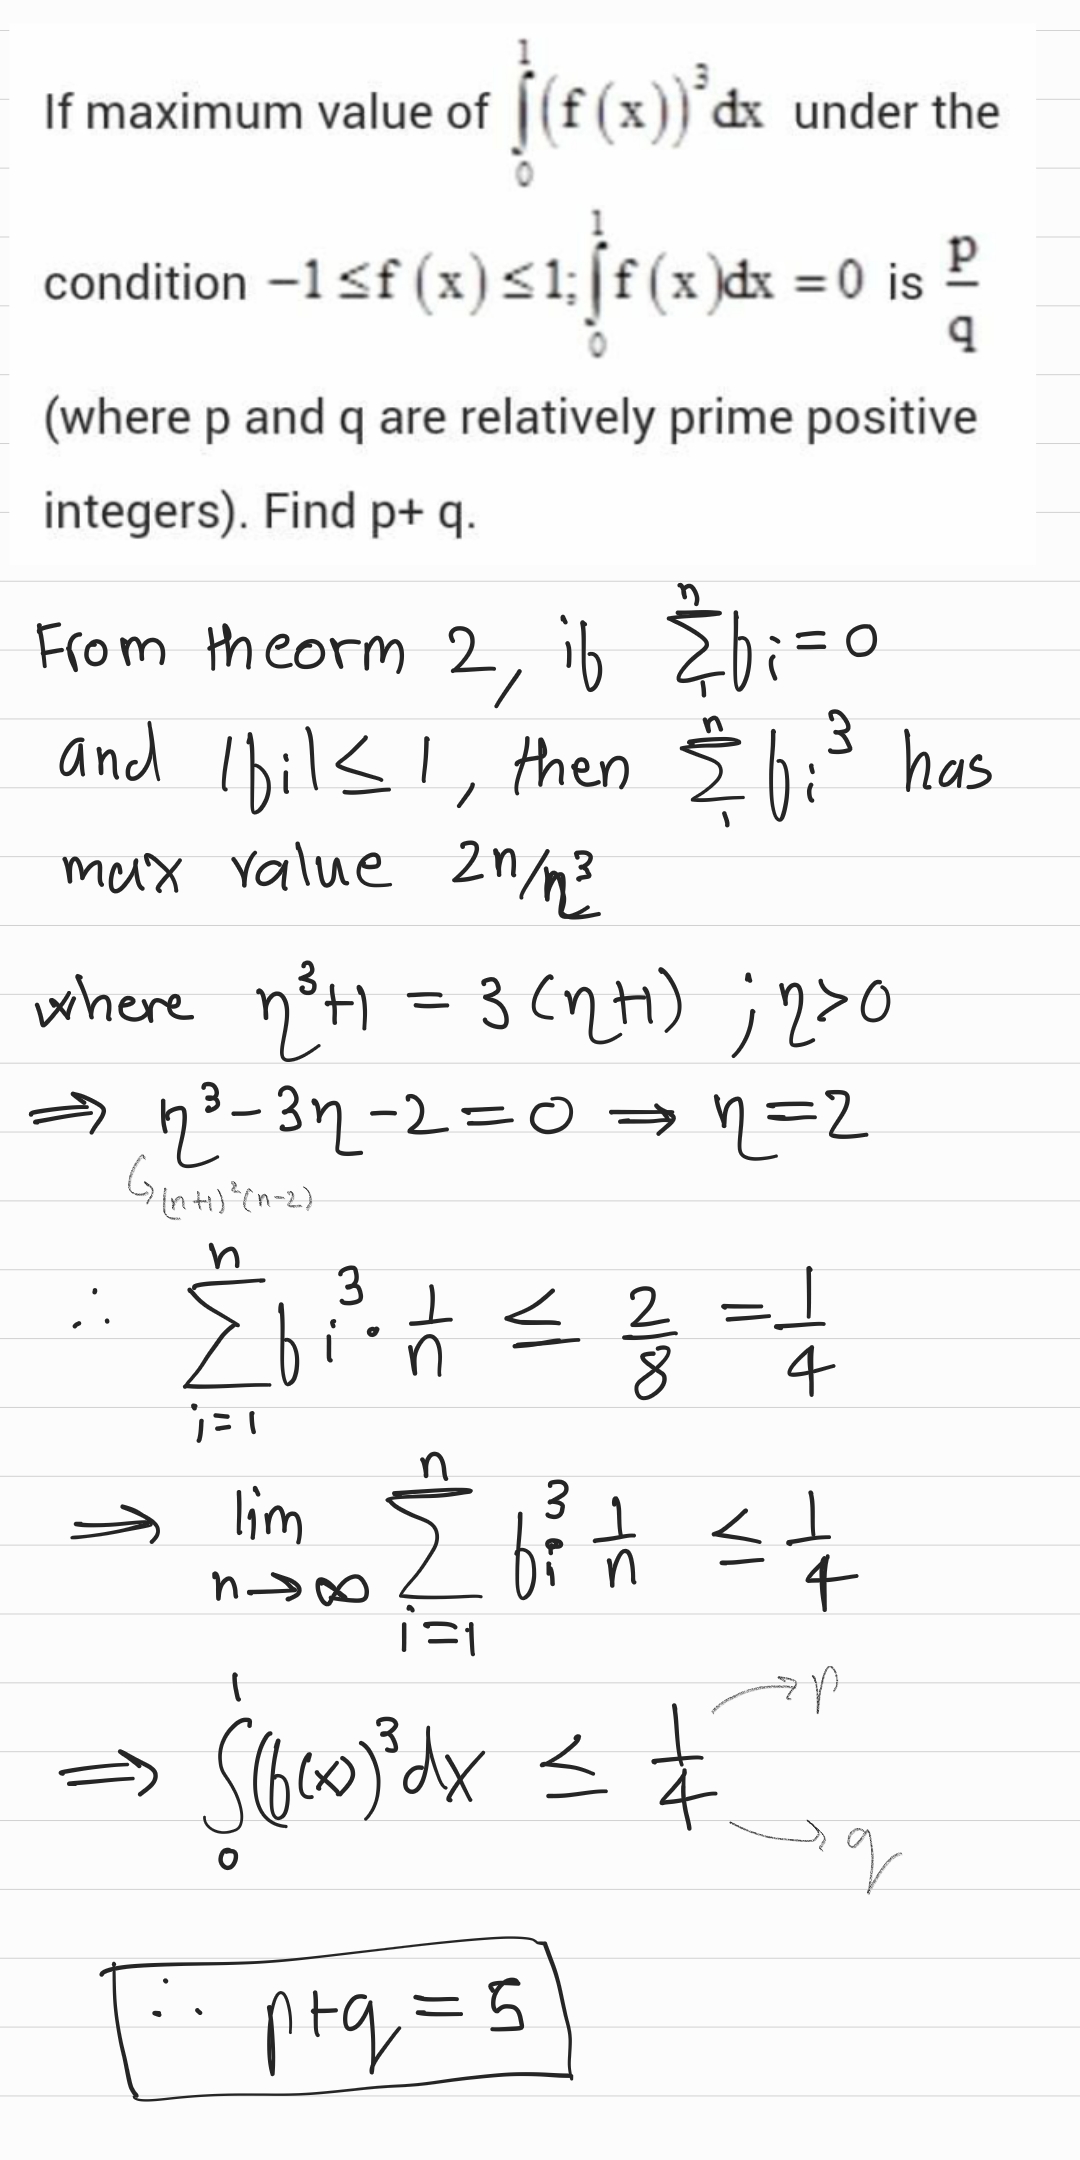 If maximum value of ∫₀¹ (f(x))³ dx under the
condition −1 ≤ f(x) ≤ 1; ∫₀¹ f(x)dx = 0 is p/q
(where p and q are relatively prime positive
integers). Find p+ q.
From theorm 2, if Σ₁ⁿ fi = 0
and |fi| ≤ 1, then Σ₁ⁿ fi³ has
max value 2n/η³
where η³+1 = 3(η+1) ; η>0
⇒ η³−3η−2=0 ⇒ η=2
↳ (η+1)²(η−2)
∴ Σᵢ₌₁ⁿ fi³ · 1/n ≤ 2/8 = 1/4
⇒ lim n→∞ Σᵢ₌₁ⁿ fi³ 1/n ≤ 1/4
⇒ ∫₀¹ (f(x))³ dx ≤ 1/4 → p → q
∴ p+q = 5